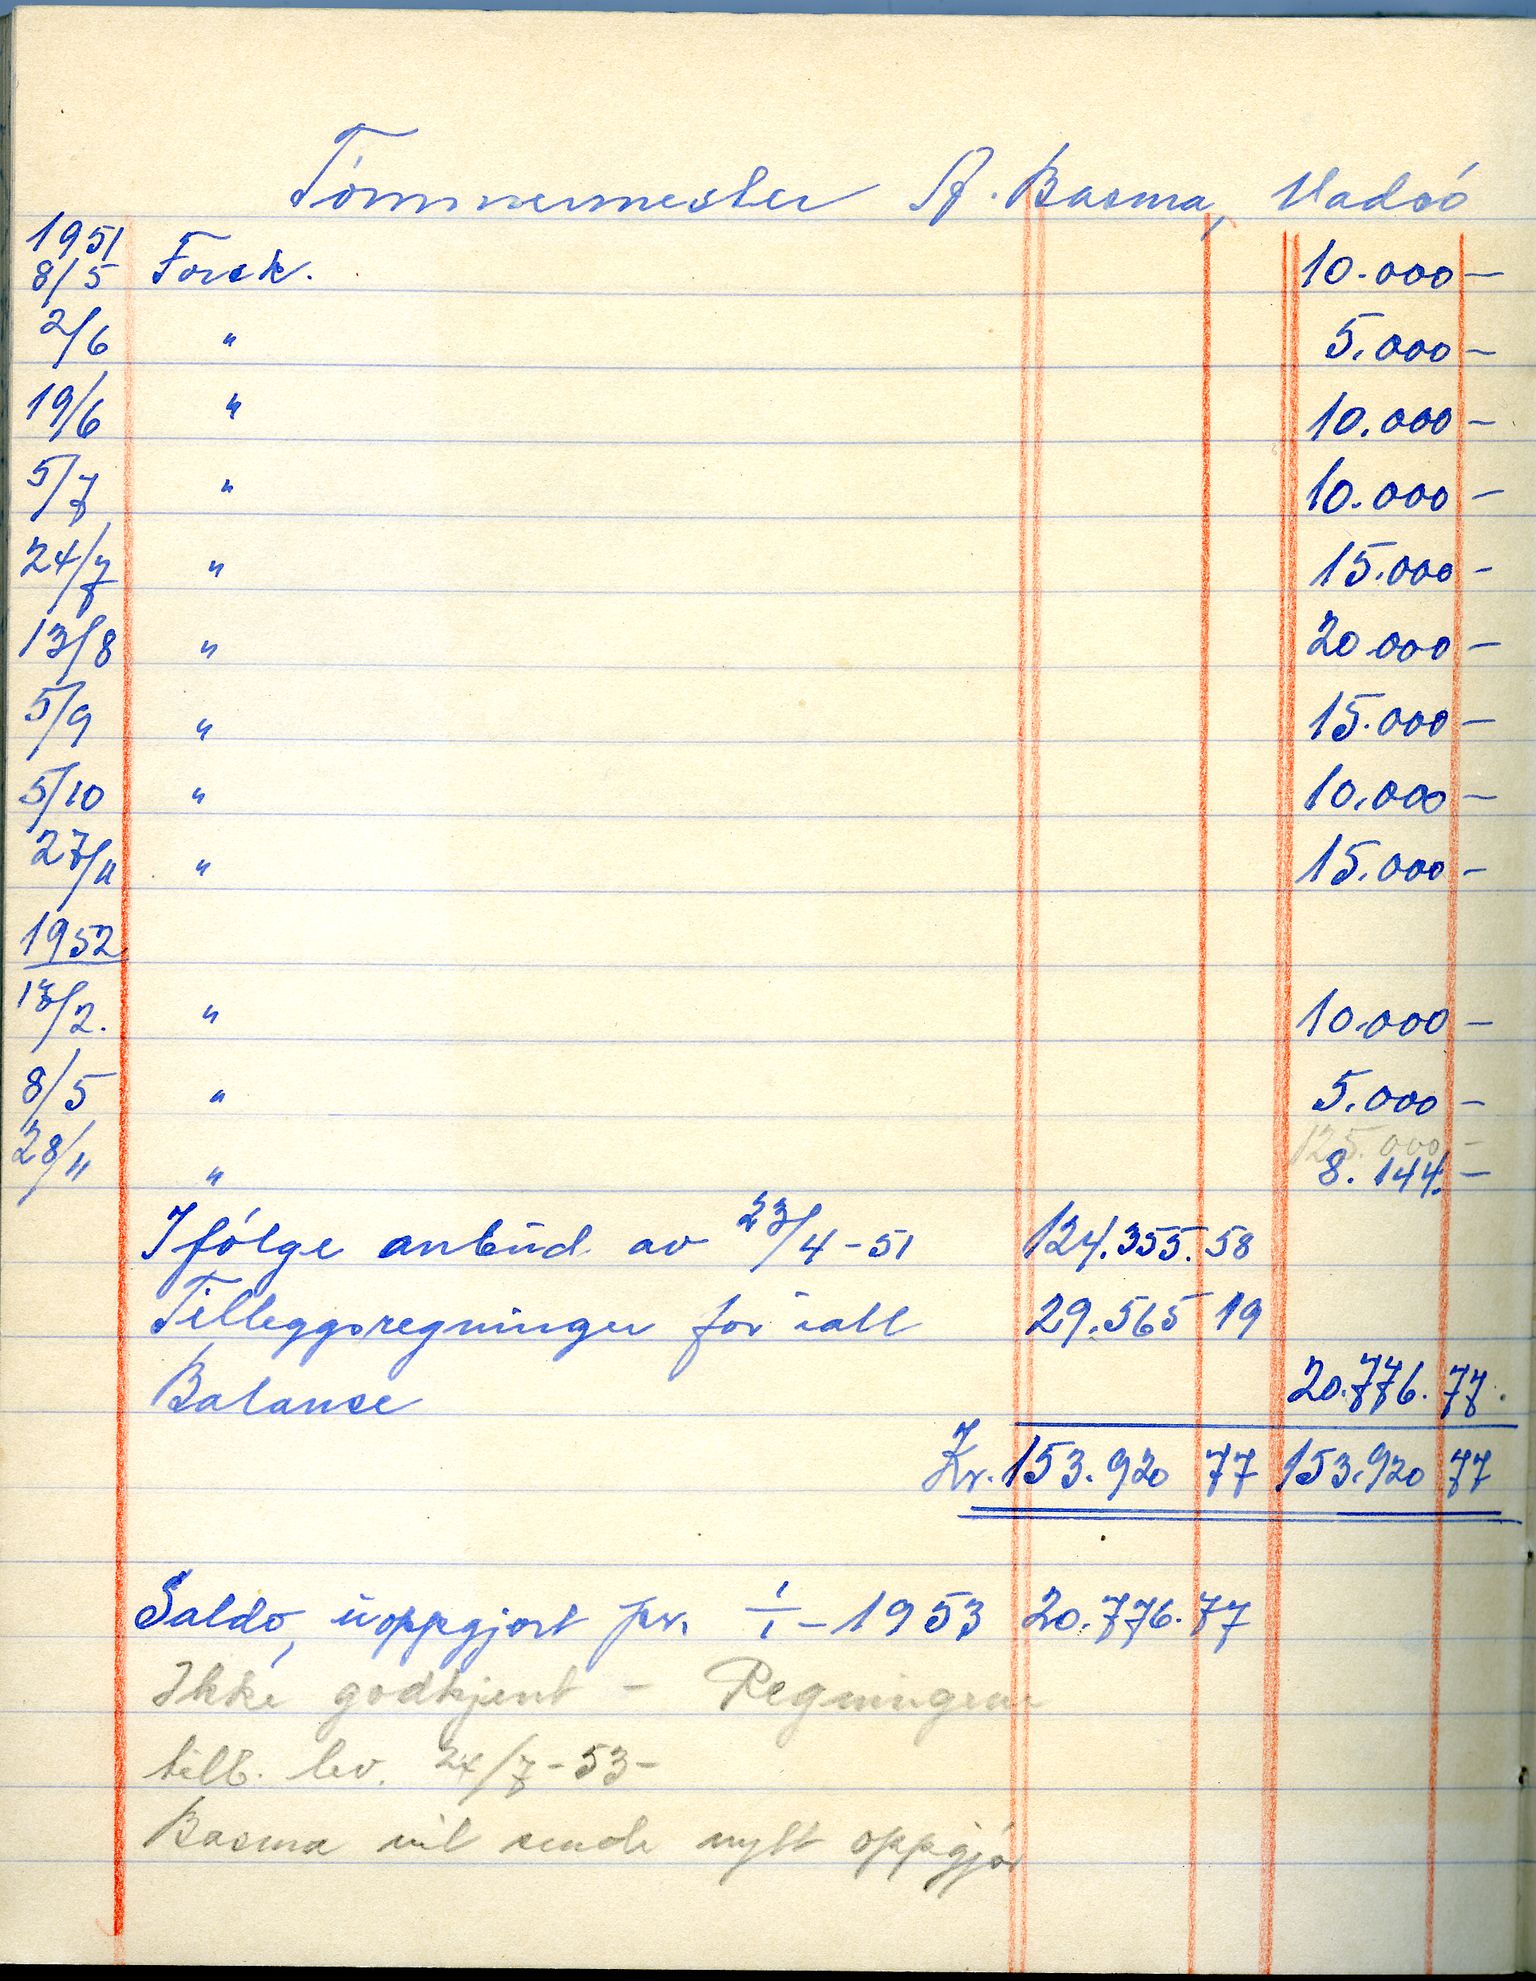 Tömmermester A. Basma, Vadsö
1951
8/5 Forsk. 10.000 –
2/6 " 5.000 –
19/6 " 10.000 –
5/7 " 10.000 –
24/7 " 15.000 –
13/8 " 20.000 –
5/9 " 15.000 –
5/10 " 10.000 –
27/11 " 15.000 –
1952
/2. " 10.000 –
8/5 " 5.000 –
125.000 –
28/11 " 8.144. –
Ifölge anbud av 23/4 – 51 124.355. 58
Tilleggsregninger for iall 29.565 19
Balanse 20.776. 77.
Kr. 153.920 77 153.920 77
Saldo, uoppgjort pr. 1/1 – 1953 20.776. 77
Ikke godkjent – Regningene
tilb. lev. 24/7 – 53 –
Basma vil sende nytt oppgjör